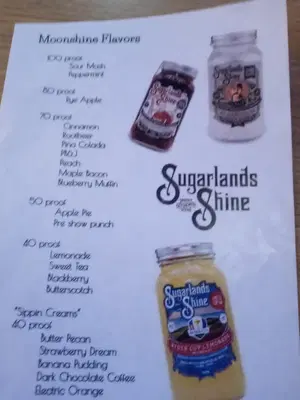 Moonshine Flavors
100 proof
Sour Mash
Peppermint
80 proof
Rye Apple
70 proof
Cinnamon
Rootbeer
Pina Colada
PB&J
Peach
Maple Bacon
Blueberry Muffin
50 proof
Apple Pie
Pre show punch
40 proof
Lemonade
Sweet Tea
Blackberry
Butterscotch
"Sippin Creams"
40 proof
Butter Pecan
Strawberry Dream
Banana Pudding
Dark Chocolate Coffee
Electric Orange
Sugarlands
Shine
Sugarlands
Shine
Sugarlands
Shine
Sugarlands
Shine